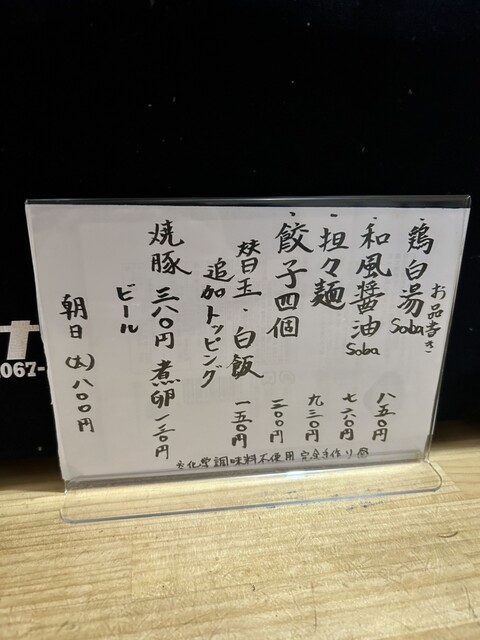 お品書き
・鶏白湯Soba 八五〇円
・和風醤油Soba 七六〇円
・担々麺 九三〇円
・餃子四個 三〇〇円
替玉・白飯 一五〇円
追加トッピング
焼豚 三八〇円 煮卵 一三〇円
ビール
朝日(大)八〇〇円
化学調味料不使用完全手作り
067-